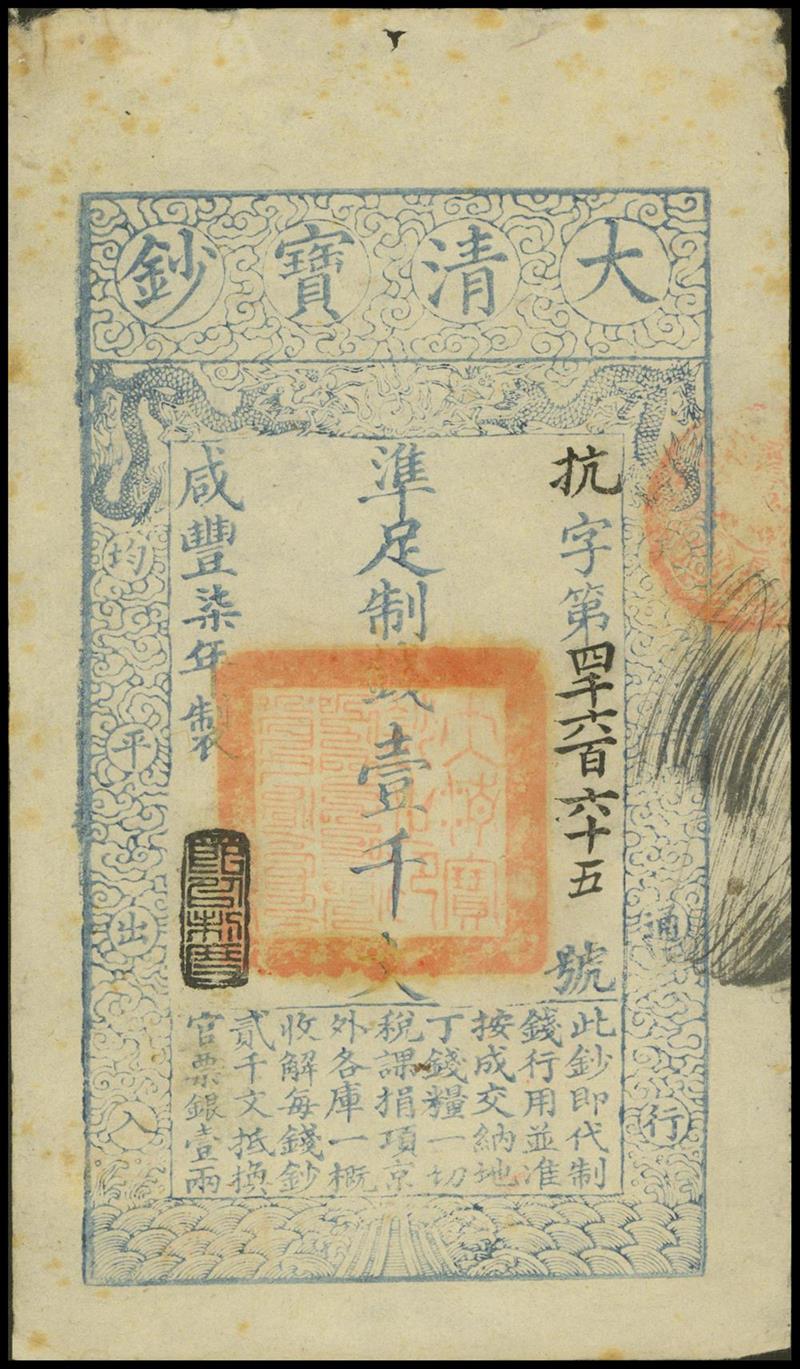 大清寶鈔
抗字第四千六百六十五號
準足制錢壹千文
咸豐柒年製
此鈔即代制
錢行用並准
按成交納地
丁錢糧一切
稅課捐項京
外各庫一概
收解每錢鈔
貳千文抵換
官票銀壹兩
通行
均平出入